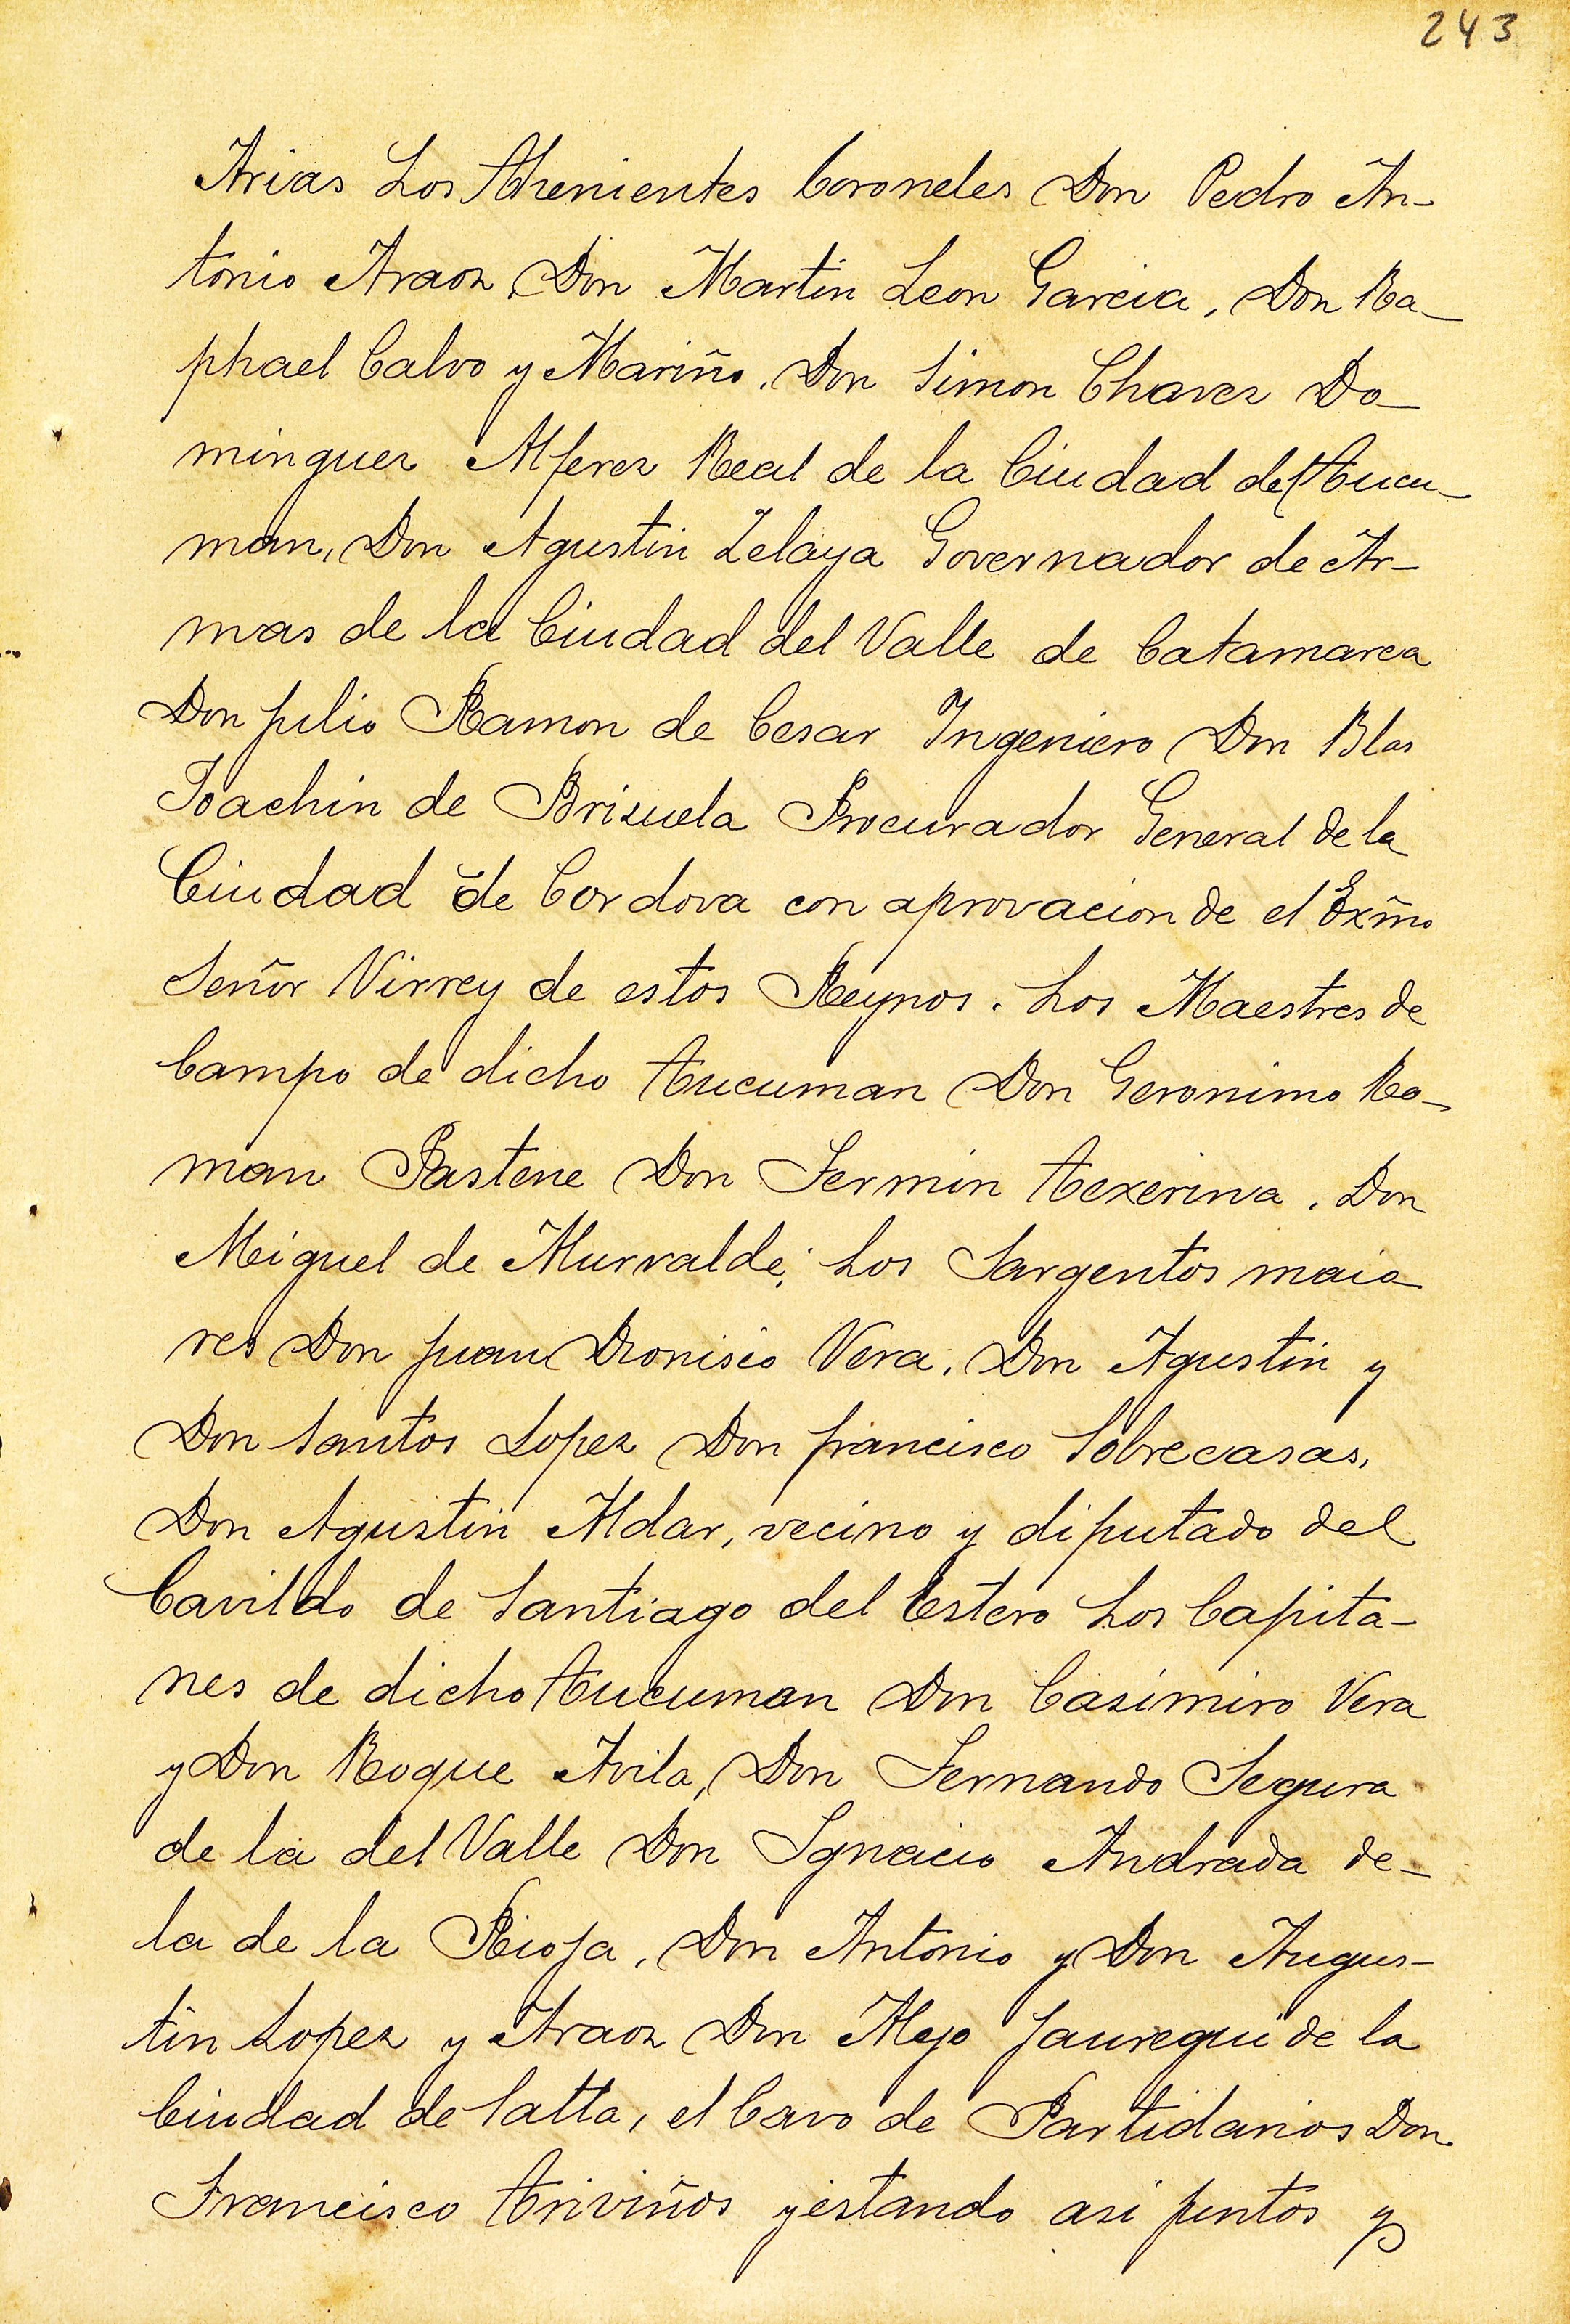 243
Arias Los Thenientes Coroneles Don Pedro An-
tonio Araoz, Don Martin Leon Garcia, Don Ra-
phael Calvo y Mariño, Don Simon Chavez Do-
minguez Alferez Real de la Ciudad del Tucu-
man, Don Agustin Zelaya Governador de Ar-
mas de la Ciudad del Valle de Catamarca
Don Julio Ramon de Cesar Ingeniero Don Blas
Joachin de Brizuela Procurador General de la
Ciudad de Cordova con aprovacion de el Exm̃o
Señor Virrey de estos Reynos. Los Maestres de
Campo de dicho Tucuman Don Geronimo Ro-
man Pastene Don Fermin Texerina. Don
Miguel de Murvalde; Los Sargentos maio
res Don Juan Dionisio Vera, Don Agustin y
Don Santos Lopez Don francisco Sobrecasas,
Don Agustin Aldar, vecino y diputado del
Cavildo de Santiago del Estero Los Capita-
nes de dicho Tucuman Don Casimiro Vera
y Don Roque Avila, Don Fernando Segura
de la del Valle Don Ignacio Andrada de-
la de la Rioja, Don Antonio y Don Augus-
tin Lopez y Araoz Don Alejo Jauregui de la
Ciudad de Salta, el Cavo de Partidarios Don
Francisco Triviños y estando asi juntos y